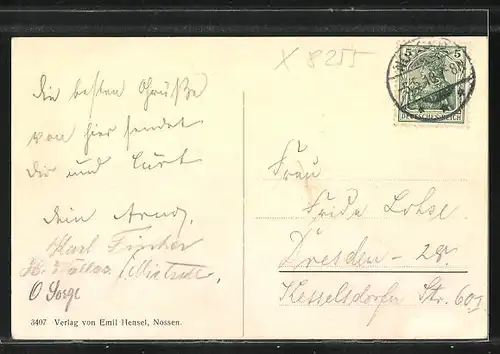 X 8255
5 5
DEUTSCHES REICH
Die besten Grüße
von hier sendet
Dir und Curt
Dein
Karl Fischer
O Sorge
Frau
Frida Lohse
Dresden - 28.
Kesselsdorfer Str. 60
3407 Verlag von Emil Hensel, Nossen.